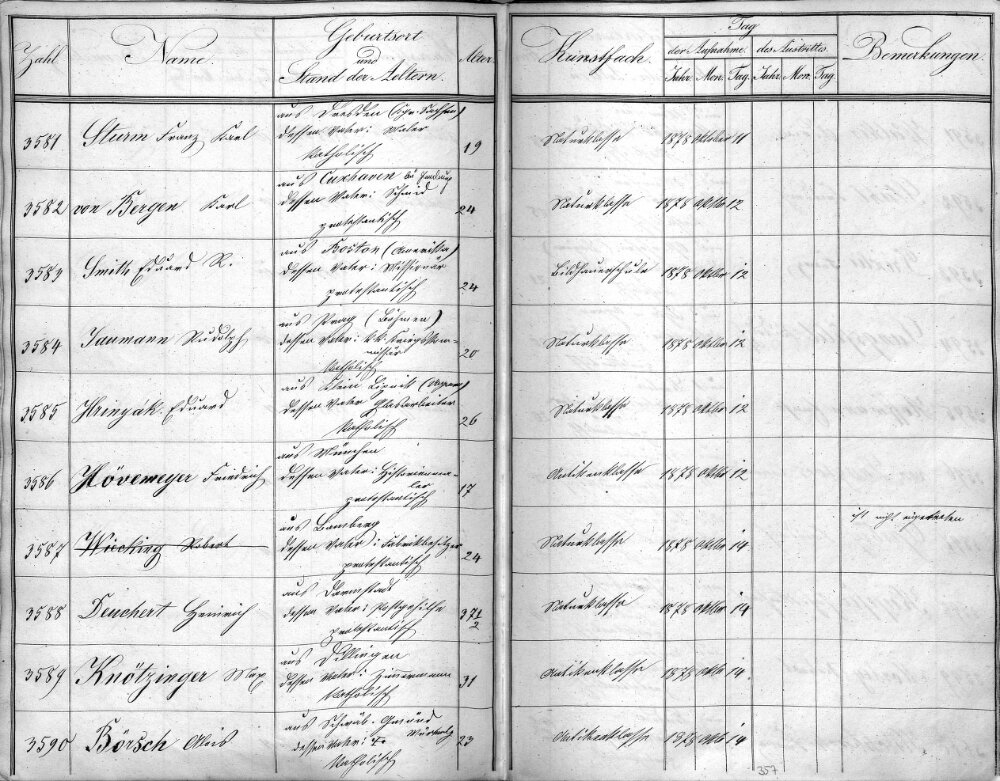 Zahl Name. Geburtsort und Stand der Aeltern. Alter Kunstfach. Tag der Aufnahme. des Austrittes. Bemerkungen.
Jahr. Mon. Tag. Jahr. Mon. Tag.
aus Dresden
3581 Sturm Franz Karl dessen Vater: Maler 19 Naturklasse 1878 Oktober 11
katholisch
aus Cuxhaven
3582 von Bergen Karl dessen Vater: Schmid 24 Naturklasse 1878 Oktber 12
protestantisch
aus Boston (Amerika)
3583 Smith Eduard R. dessen Vater: Missionär 24 Bildhauerschule 1878 Oktber 12
protestantisch
aus Prag (Böhmen)
3584 Jaumann Rudolph dessen Vater: k.k. Kriegskom- 20 Naturklasse 1878 Oktber 12
missär
katholisch
aus Klein
3585 Hrinyák. Eduard dessen Vater Glasarbeiter 26 Naturklasse 1878 Oktber 12
katholisch
aus München
3586 Hövemeyer Friedrich dessen Vater: Historienma- 17 Antikenklasse 1878 Oktbr 12
ler
protestantisch
aus Bamberg ist nicht eingetreten
3587 Robert dessen Vater: Fabrikbesitzer 24 Naturklasse 1878 Oktber 14
protestantisch
aus Darmstadt
3588 Deuchert Heinrich dessen Vater: Postgehilfe 37 1/2 Naturklasse 1878 Oktber 14
protestantisch
aus Dillingen
3589 Knötzinger Max dessen Vater: Zimmermann 31 Antikenklasse 1878 Oktb 14.
katholisch
aus Schwäb. Gmünd
3590 Börsch Alois dessen Vater: 23 Antikenklasse 1878 Oktb 14
katholisch
357